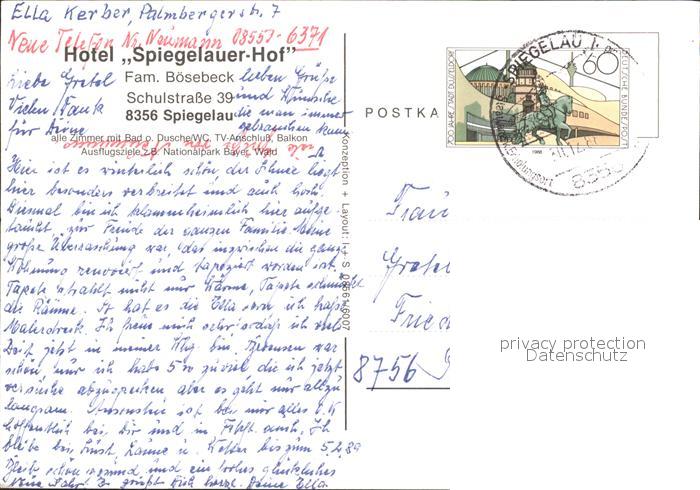 Ella Kerber, Palmbergerstr. 7
Neue Telefon Nr. Neumann 08553-6371
Hotel „Spiegelauer-Hof"
Fam. Bösebeck
Schulstraße 39
8356 Spiegelau
alle Zimmer mit Bad o. Dusche/WC, TV-Anschluß, Balkon
Ausflugsziele z.B. Nationalpark Bayer. Wald
Liebe Gretel
Vielen Dank
für Deine
lieben Grüße
und Wünsche
die man immer
gebrauchen kann
Hier ist es winterlich schön, der Schnee liegt
hier besonders verbreitet und auch hoch.
Diesmal bin ich klammheimlich hier aufge
taucht, zur Freude der ganzen Familie. Meine
große Überraschung war, das inzwischen die ganze
Wohnung renoviert und tapeziert worden ist.
Tapete strahlt nicht nur Wärme, Tapete schmückt
die Räume. So hat es die Ella gern ich hasse
Malerdreck. Ich freue mich sehr, daß ich viel
Zeit jetzt in meiner Whg. bin. Gewesen war
schön nur ich habe 5 zu viel die ich jetzt
versuche abzuspecken aber es geht nur allzu
langsam. Ansonsten ist bei mir alles O.K
hoffentlich bei Dir und in auch. Ich
bleibe bei Lust, Laune u. Wetter bis zum 5.2.89
Bleib schön gesund und ein frohes glückliches
Neue Jahr. Es grüßt Dich herzl. Deine Ella
Konzeption + Layout: I + S 08561/6007
POSTKA
700 JAHRE STADT DÜSSELDORF
60
DEUTSCHE BUNDESPOST
1988
SPIEGELAU 1
8356
Frau
Gretel
Fried
8756
privacy protection
Datenschutz